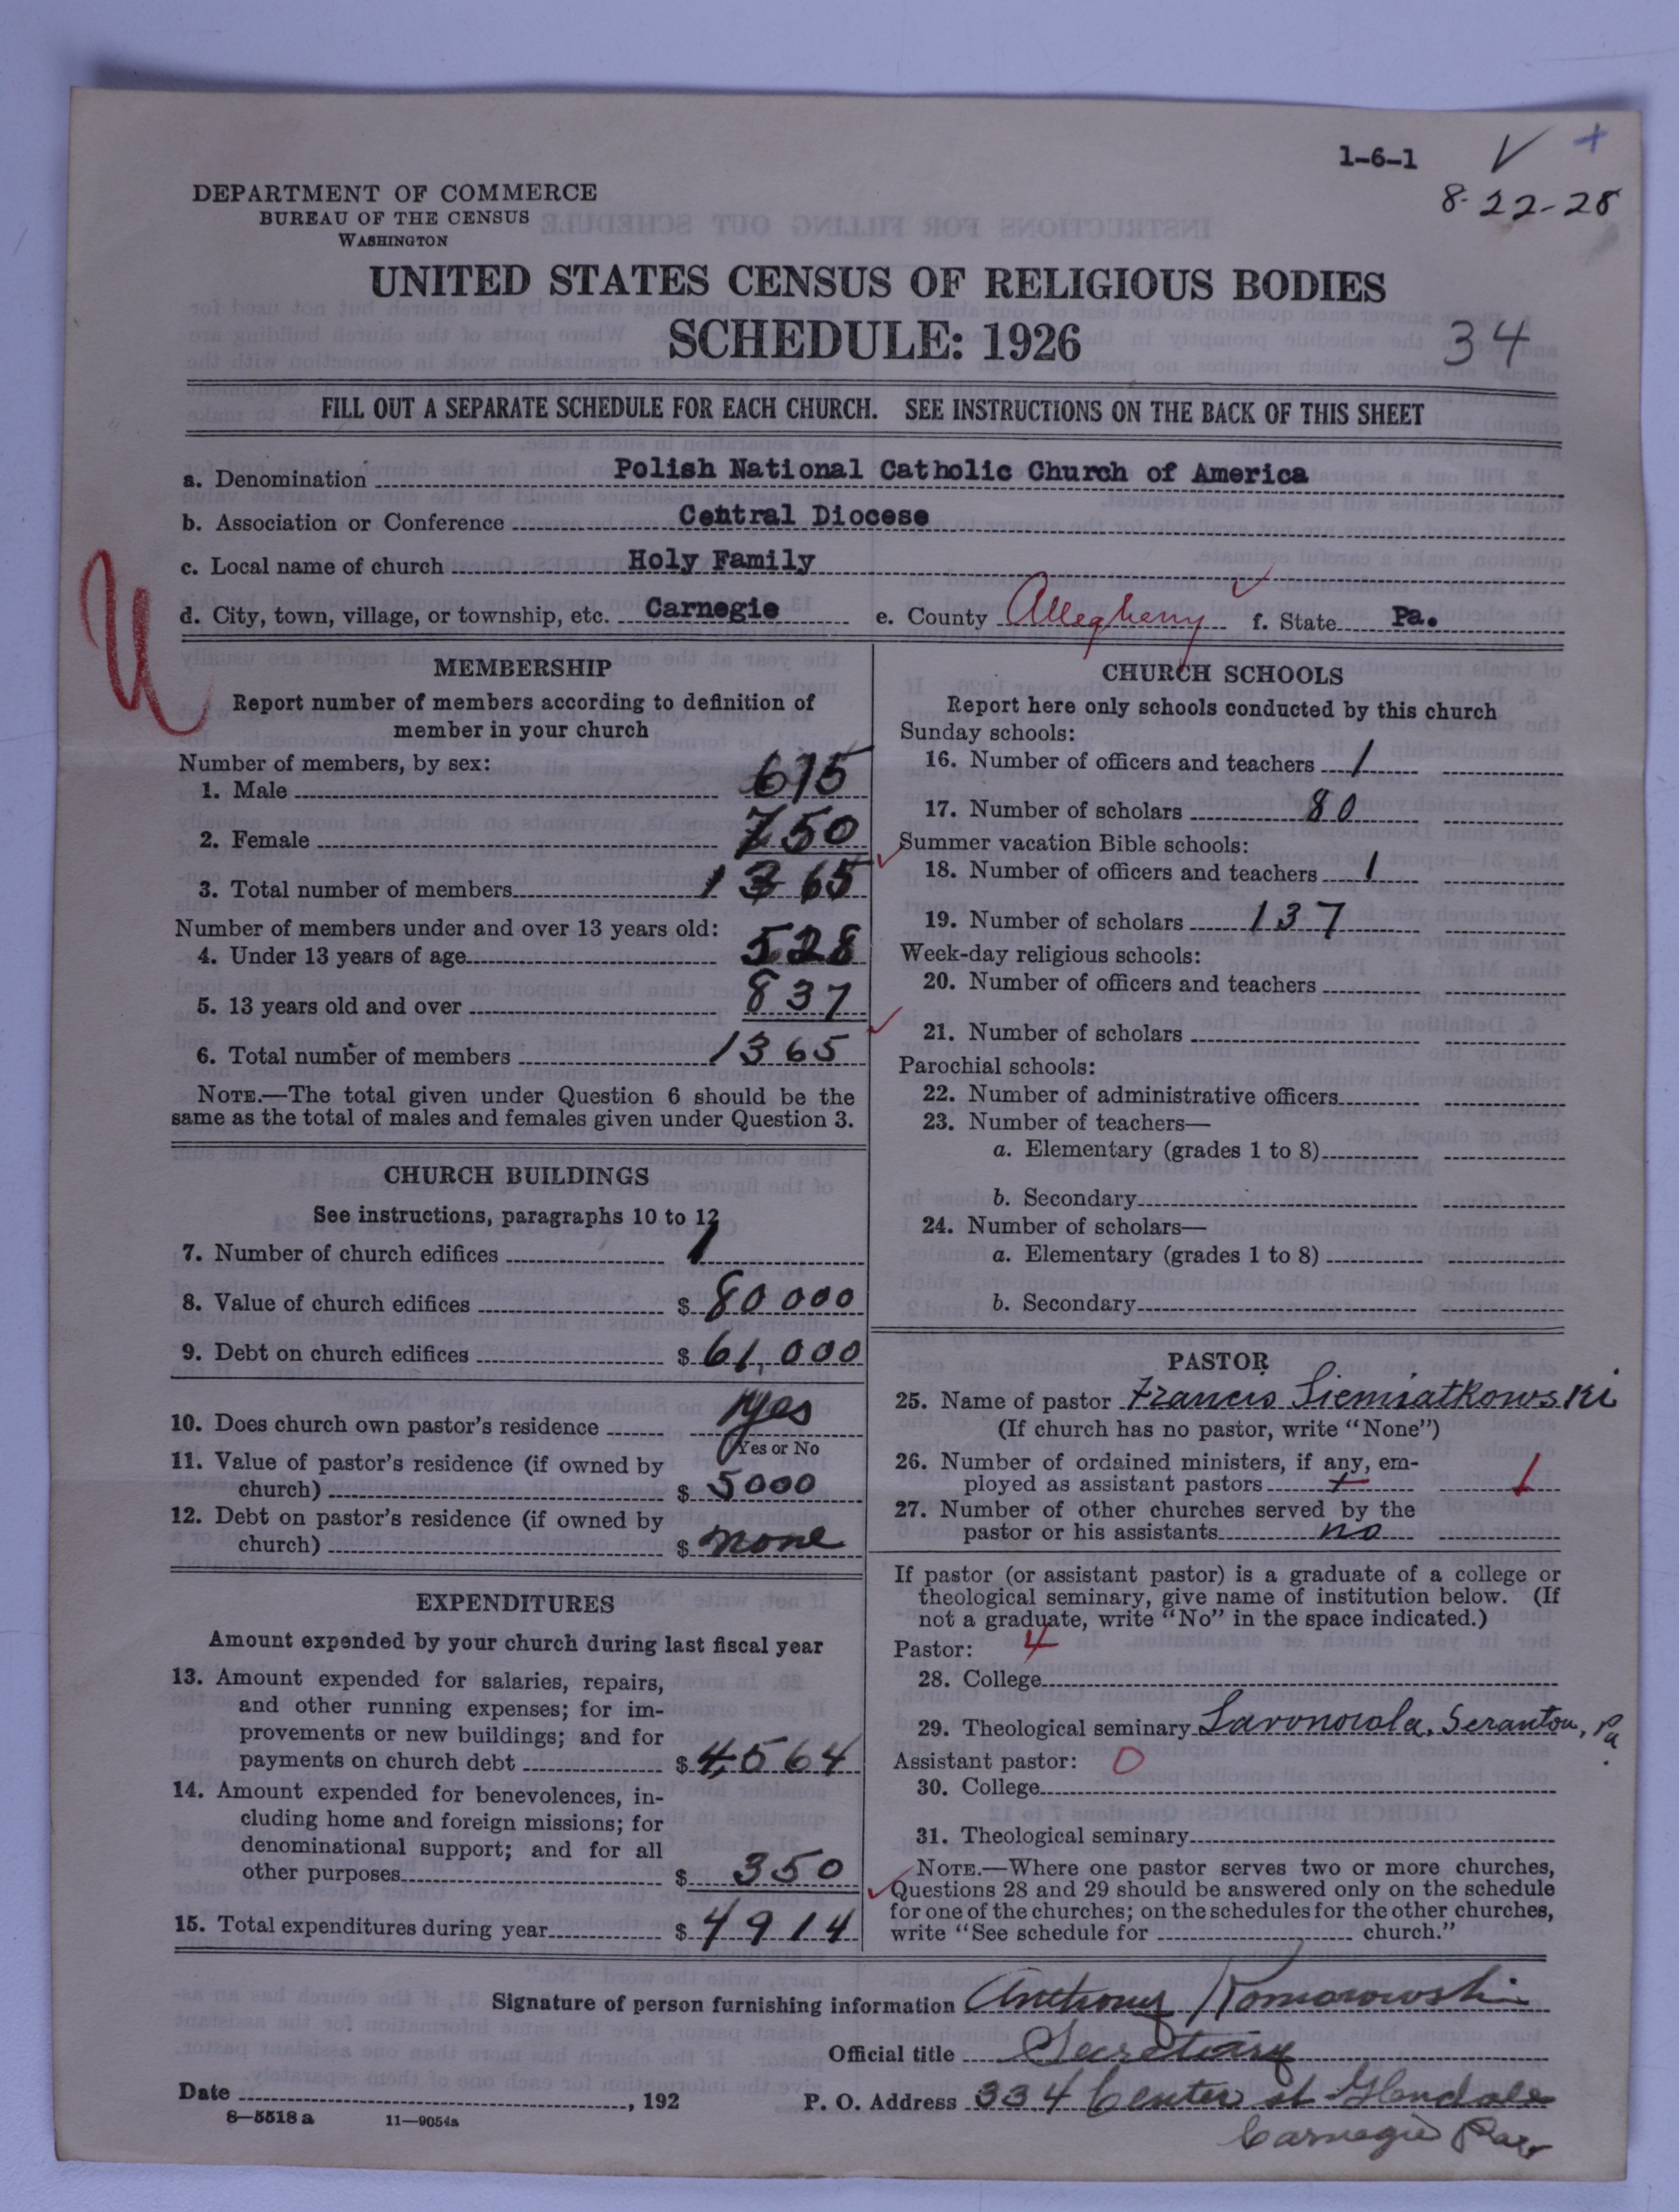 1-6-1
8-22-28
DEPARTMENT OF COMMERCE
BUREAU OF THE CENSUS
WASHINGTON
UNITED STATES CENSUS OF RELIGIOUS BODIES
SCHEDULE: 1926
34
FILL OUT A SEPARATE SCHEDULE FOR EACH CHURCH. SEE INSTRUCTIONS ON THE BACK OF THIS SHEET
a. Denomination Polish National Catholic Church of America
b. Association or Conference Central Diocese
c. Local name of church Holy Family
d. City, town, village, or township, etc. Carnegie e. County Allegheny f. State Pa.
U
MEMBERSHIP
Report number of members according to definition of
member in your church
Number of members, by sex:
1. Male 615
2. Female 750
3. Total number of members 1365
Number of members under and over 13 years old:
4. Under 13 years of age 528
5. 13 years old and over 837
6. Total number of members 1365
NOTE.—The total given under Question 6 should be the
same as the total of males and females given under Question 3.
CHURCH BUILDINGS
See instructions, paragraphs 10 to 12
7. Number of church edifices 1
8. Value of church edifices $ 80 000
9. Debt on church edifices $ 61,000
10. Does church own pastor's residence yes
Yes or No
11. Value of pastor's residence (if owned by
church) $ 5000
12. Debt on pastor's residence (if owned by
church) $ none
EXPENDITURES
Amount expended by your church during last fiscal year
13. Amount expended for salaries, repairs,
and other running expenses; for im-
provements or new buildings; and for
payments on church debt $ 4,564
14. Amount expended for benevolences, in-
cluding home and foreign missions; for
denominational support; and for all
other purposes $ 350
15. Total expenditures during year $ 4914
CHURCH SCHOOLS
Report here only schools conducted by this church
Sunday schools:
16. Number of officers and teachers 1
17. Number of scholars 80
Summer vacation Bible schools:
18. Number of officers and teachers 1
19. Number of scholars 137
Week-day religious schools:
20. Number of officers and teachers
21. Number of scholars
Parochial schools:
22. Number of administrative officers
23. Number of teachers—
a. Elementary (grades 1 to 8)
b. Secondary
24. Number of scholars—
a. Elementary (grades 1 to 8)
b. Secondary
PASTOR
25. Name of pastor Francis Siemiatkowski
(If church has no pastor, write "None")
26. Number of ordained ministers, if any, em-
ployed as assistant pastors 1
27. Number of other churches served by the
pastor or his assistants no
If pastor (or assistant pastor) is a graduate of a college or
theological seminary, give name of institution below. (If
not a graduate, write "No" in the space indicated.)
Pastor: 4
28. College
29. Theological seminary Savonorola, Scranton, Pa.
Assistant pastor: 0
30. College
31. Theological seminary
NOTE.—Where one pastor serves two or more churches,
Questions 28 and 29 should be answered only on the schedule
for one of the churches; on the schedules for the other churches,
write "See schedule for church."
Signature of person furnishing information Anthony Komorowski
Official title Secretary
Date , 192 P. O. Address 334 Center st Glendale
Carnegie Pa
8—5518 a 11—9054a